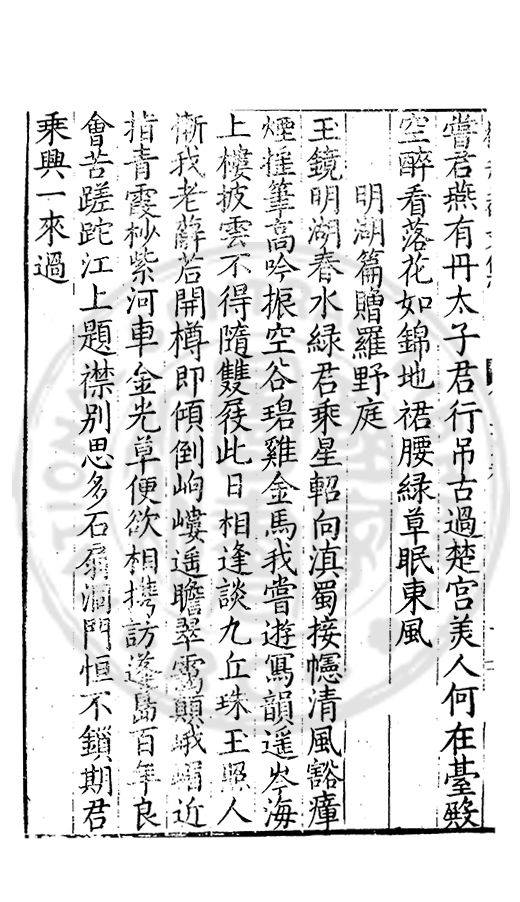 嘗君燕有丹太子君行吊古過楚宮美人何在臺殿
空醉看落花如錦地裙腰綠草眠東風
明湖篇贈羅野庭
玉鏡明湖春水綠君乘星軺向滇蜀接幰清風豁瘴
煙摧筆高吟振空谷碧雞金馬我嘗遊寫韻遥岑海
上樓披雲不得隨雙屐此日相逢談九丘珠玉照人
慚我老蘚若開樽即傾倒岣嶁遥瞻翠靄顛峨嵋近
指青霞杪紫河車金光草便欲相攜訪蓬島百年良
會苦蹉跎江上題襟别思多石扇洞門恒不鎖期君
乘興一來過